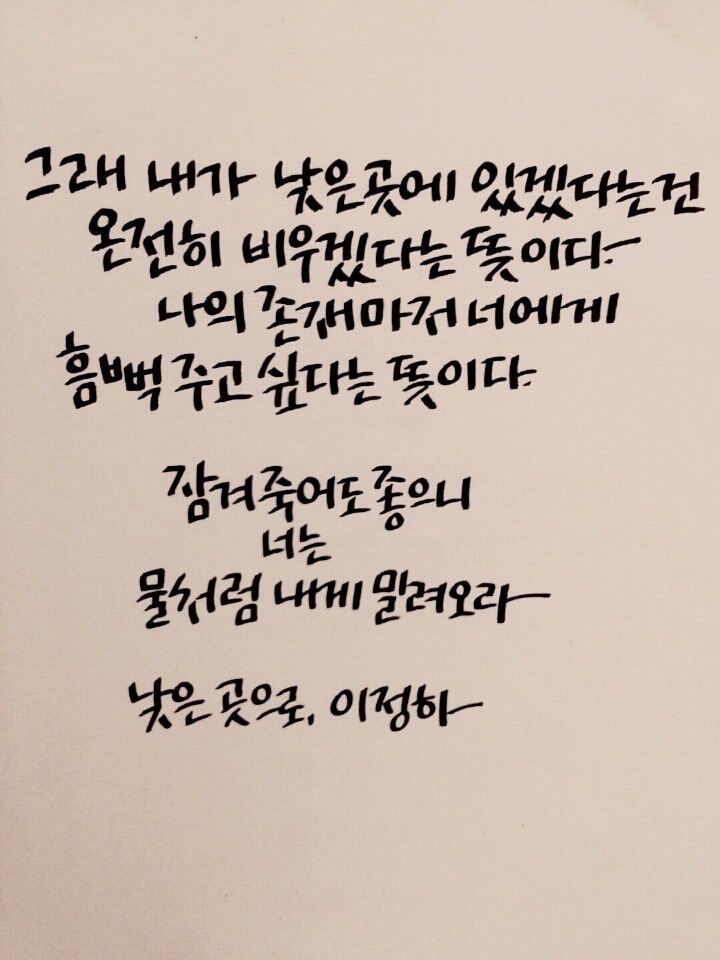 그래 내가 낮은곳에 있겠다는건
온전히 비우겠다는 뜻이다.
나의 존재마저 너에게
흠뻑 주고 싶다는 뜻이다.
잠겨 죽어도 좋으니
너는
물처럼 내게 밀려오라
낮은 곳으로, 이정하